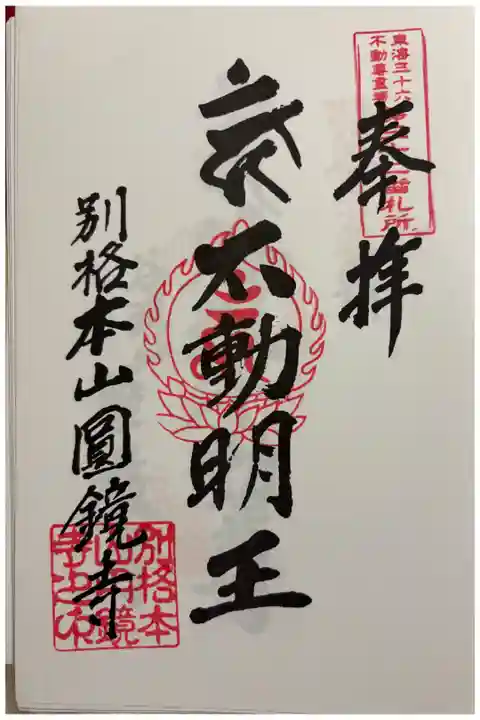 東海三十六
不動尊霊
番札所
奉拝
不動明王
別格本山圓鏡寺
別格本
山圓鏡
寺之印